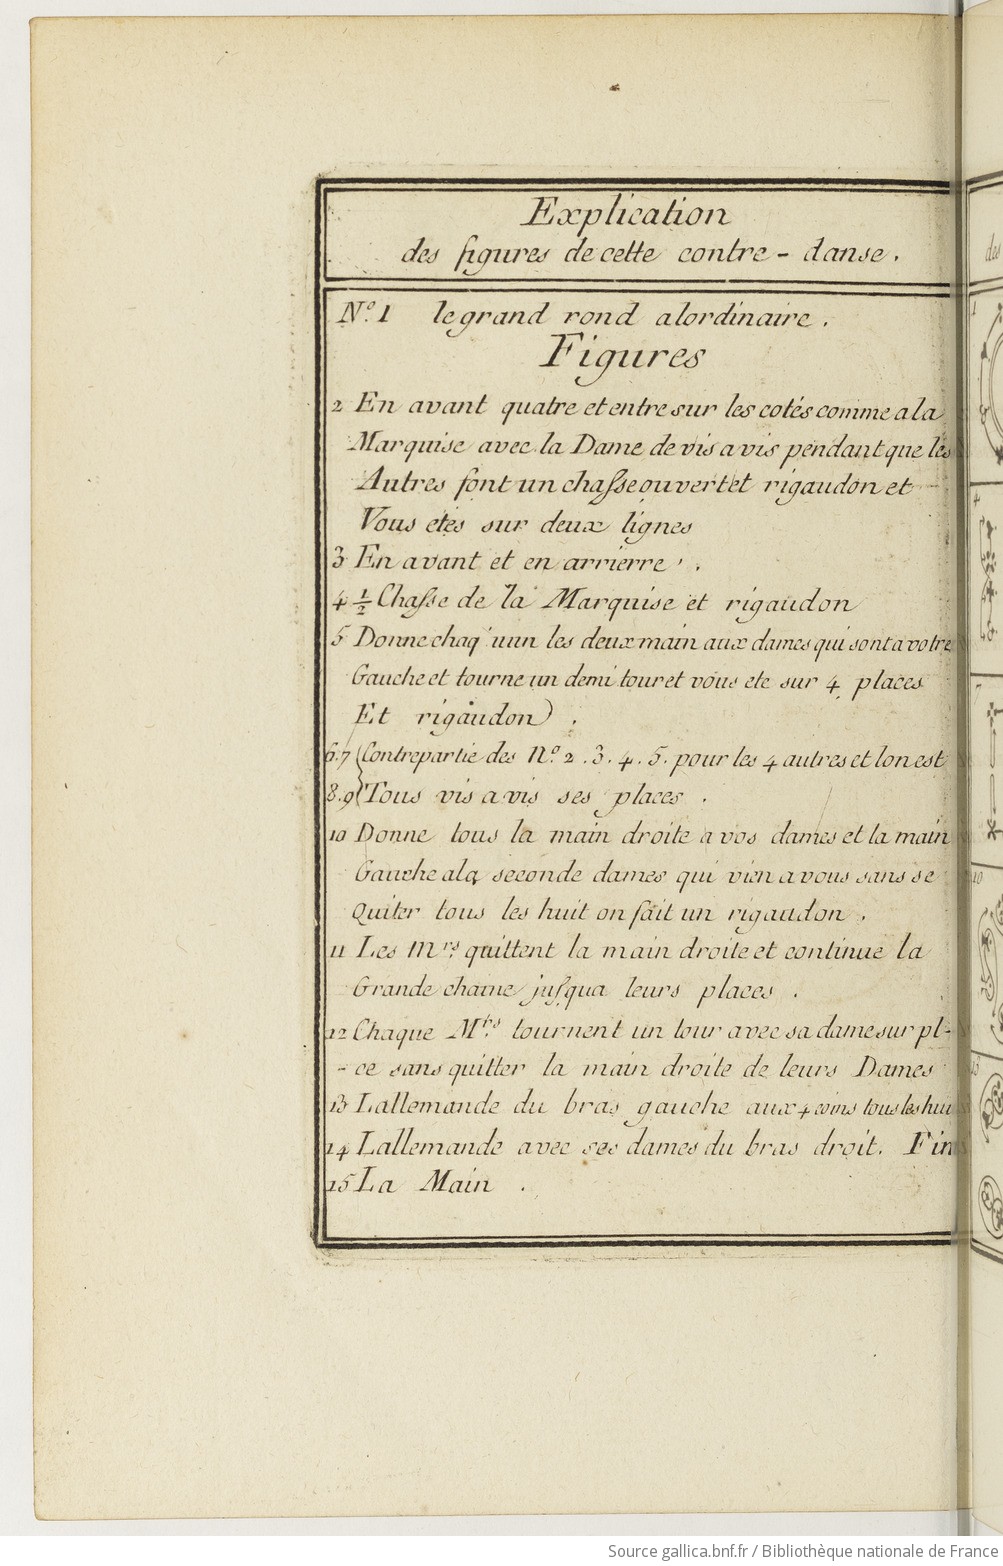 Explication
des figures de cette contre - danse .
N.o 1 le grand rond alordinaire .
Figures
2 En avant quatre et entre sur les cotés comme a la
Marquise avec la Dame de vis a vis pendant que les
Autres font un chasse ouvert et rigaudon et
Vous etes sur deux lignes
3 En avant et en arrierre .
4 1/2 Chasse de la Marquise et rigaudon
5 Donne chaq'uun les deux main aux dames qui sont a votre
Gauche et tourne un demi tour et vous ete sur 4 places
Et rigaudon .
6.7 Contrepartie des N.o 2 . 3 . 4 . 5 . pour les 4 autres et lon est
8.9 Tous vis a vis ses places .
10 Donne tous la main droite a vos dames et la main
Gauche a la seconde dames qui vien a vous sans se
Quiter tous les huit on fait un rigaudon .
11 Les M.rs quittent la main droite et continue la
Grande chaine jusqua leurs places .
12 Chaque M.rs tournent un tour avec sa dame sur pl-
- ce sans quitter la main droite de leurs Dames
13 Lallemande du bras gauche aux 4 coins tous les huit
14 Lallemande avec ses dames du bras droit. Fin
15 La Main .
des
1
4
7
10
13
Source gallica.bnf.fr / Bibliothèque nationale de France